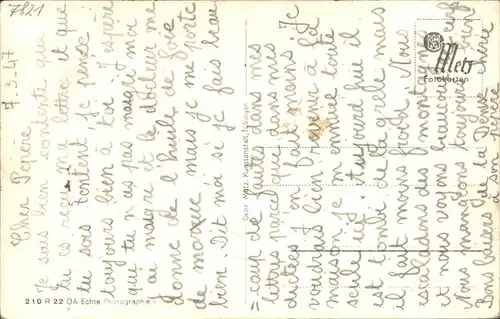 7821
7. 3. 47
Cher Pepère
Je suis bien contente que
tu es reçu ma lettre, et que
tu sois content. Je pense
toujours bien à toi. J'espère
que tu n'as pas maigri moi
j'ai maigri et le docteur me
donne de l'huile de foie
de morue mais je me porte
bien. Dit moi si je fais beau
coup de fautes dans mes
lettres parce que dans mes
dictées j'en fait moins. Je
voudrais bien revenir à la
maison. Je m'ennuie toute
seule ici. Aujourd'hui il
est tombé de la grele mais
il fait moins froid. Nous
escaladons des montagnes
et nous voyons beaucoup
nous mangeons toujours
Bons baisers de la
Metz
Fotokarten
Gebr. Metz, Kunstanstalt, Tübingen
210 R 22 DA Echte Photographie